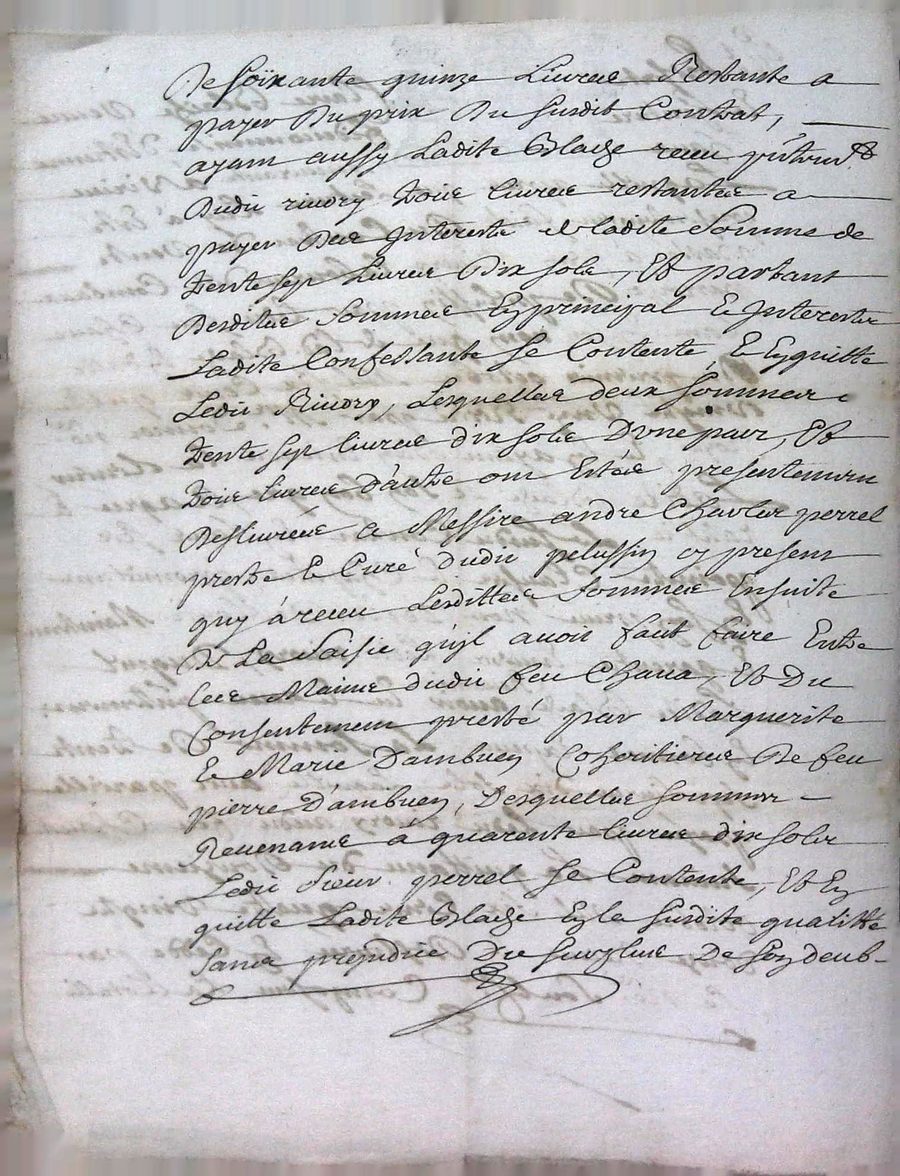 De soixante quinze Livres Restante a
payer Du prix Du susdit Contrat,
ayant aussy Ladite Blaize receu
Dudit rivory trois livres restantes a
payer Des Interests de ladite Somme de
trente sept Livres Dix sols, Et partant
Desdites Sommes En principal & Interests
Ladite Confessante Se Contente, & En quitte
Ledit Rivory, Lesquelles deux Sommes
trente sept livres dix sols D'une part, Et
trois livres d'autre ont Estées presentement
Deslivrées a Messire andre Charles perrel
prestre & Curé dudit pelussin cy present
quy à receu Lesdittes Sommes Ensuite
De La Saisie qu'il avoit fait faire Entre
Les Mains dudit feu Chava, Et Du
Consentement presté par Marguerite
& Marie Dambuen Coheritieres De feu
pierre D'ambuen, Desquelles sommes
Revenants à quarente livres dix sols
Ledit Sieur perrel Se Contente, Et En
quitte Ladite Blaize En la Susdite qualitté
Sans prejudice Du Surplus De Son deub